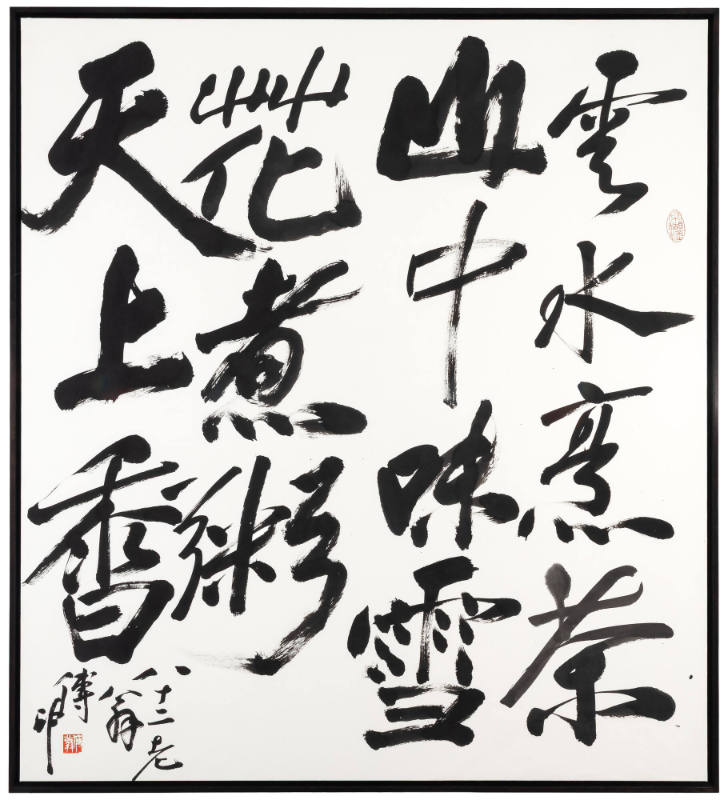 雲水烹茶
山中味雪
花煮粥
天上香
八十二老
翁
傅申